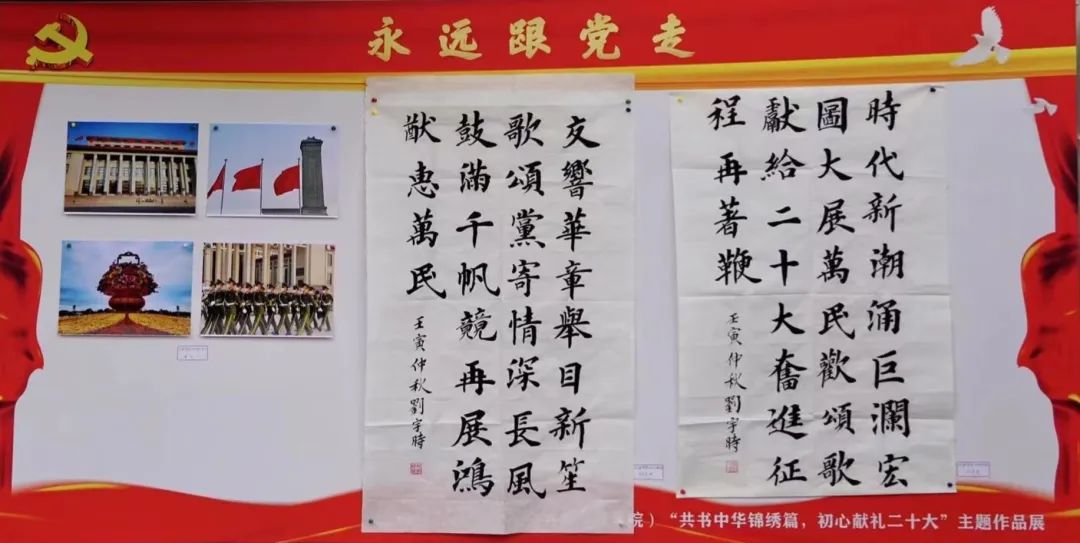 永远跟党走
時代新潮涌巨瀾宏
圖大展萬民歡頌歌
獻給二十大奮進征
程再著鞭
壬寅仲秋劉宇時
交響華章舉目新笙
歌頌黨寄情深長風
鼓滿千帆競再展鴻
猷惠萬民
壬寅仲秋劉宇時
院）“共书中华锦绣篇，初心献礼二十大”主题作品展